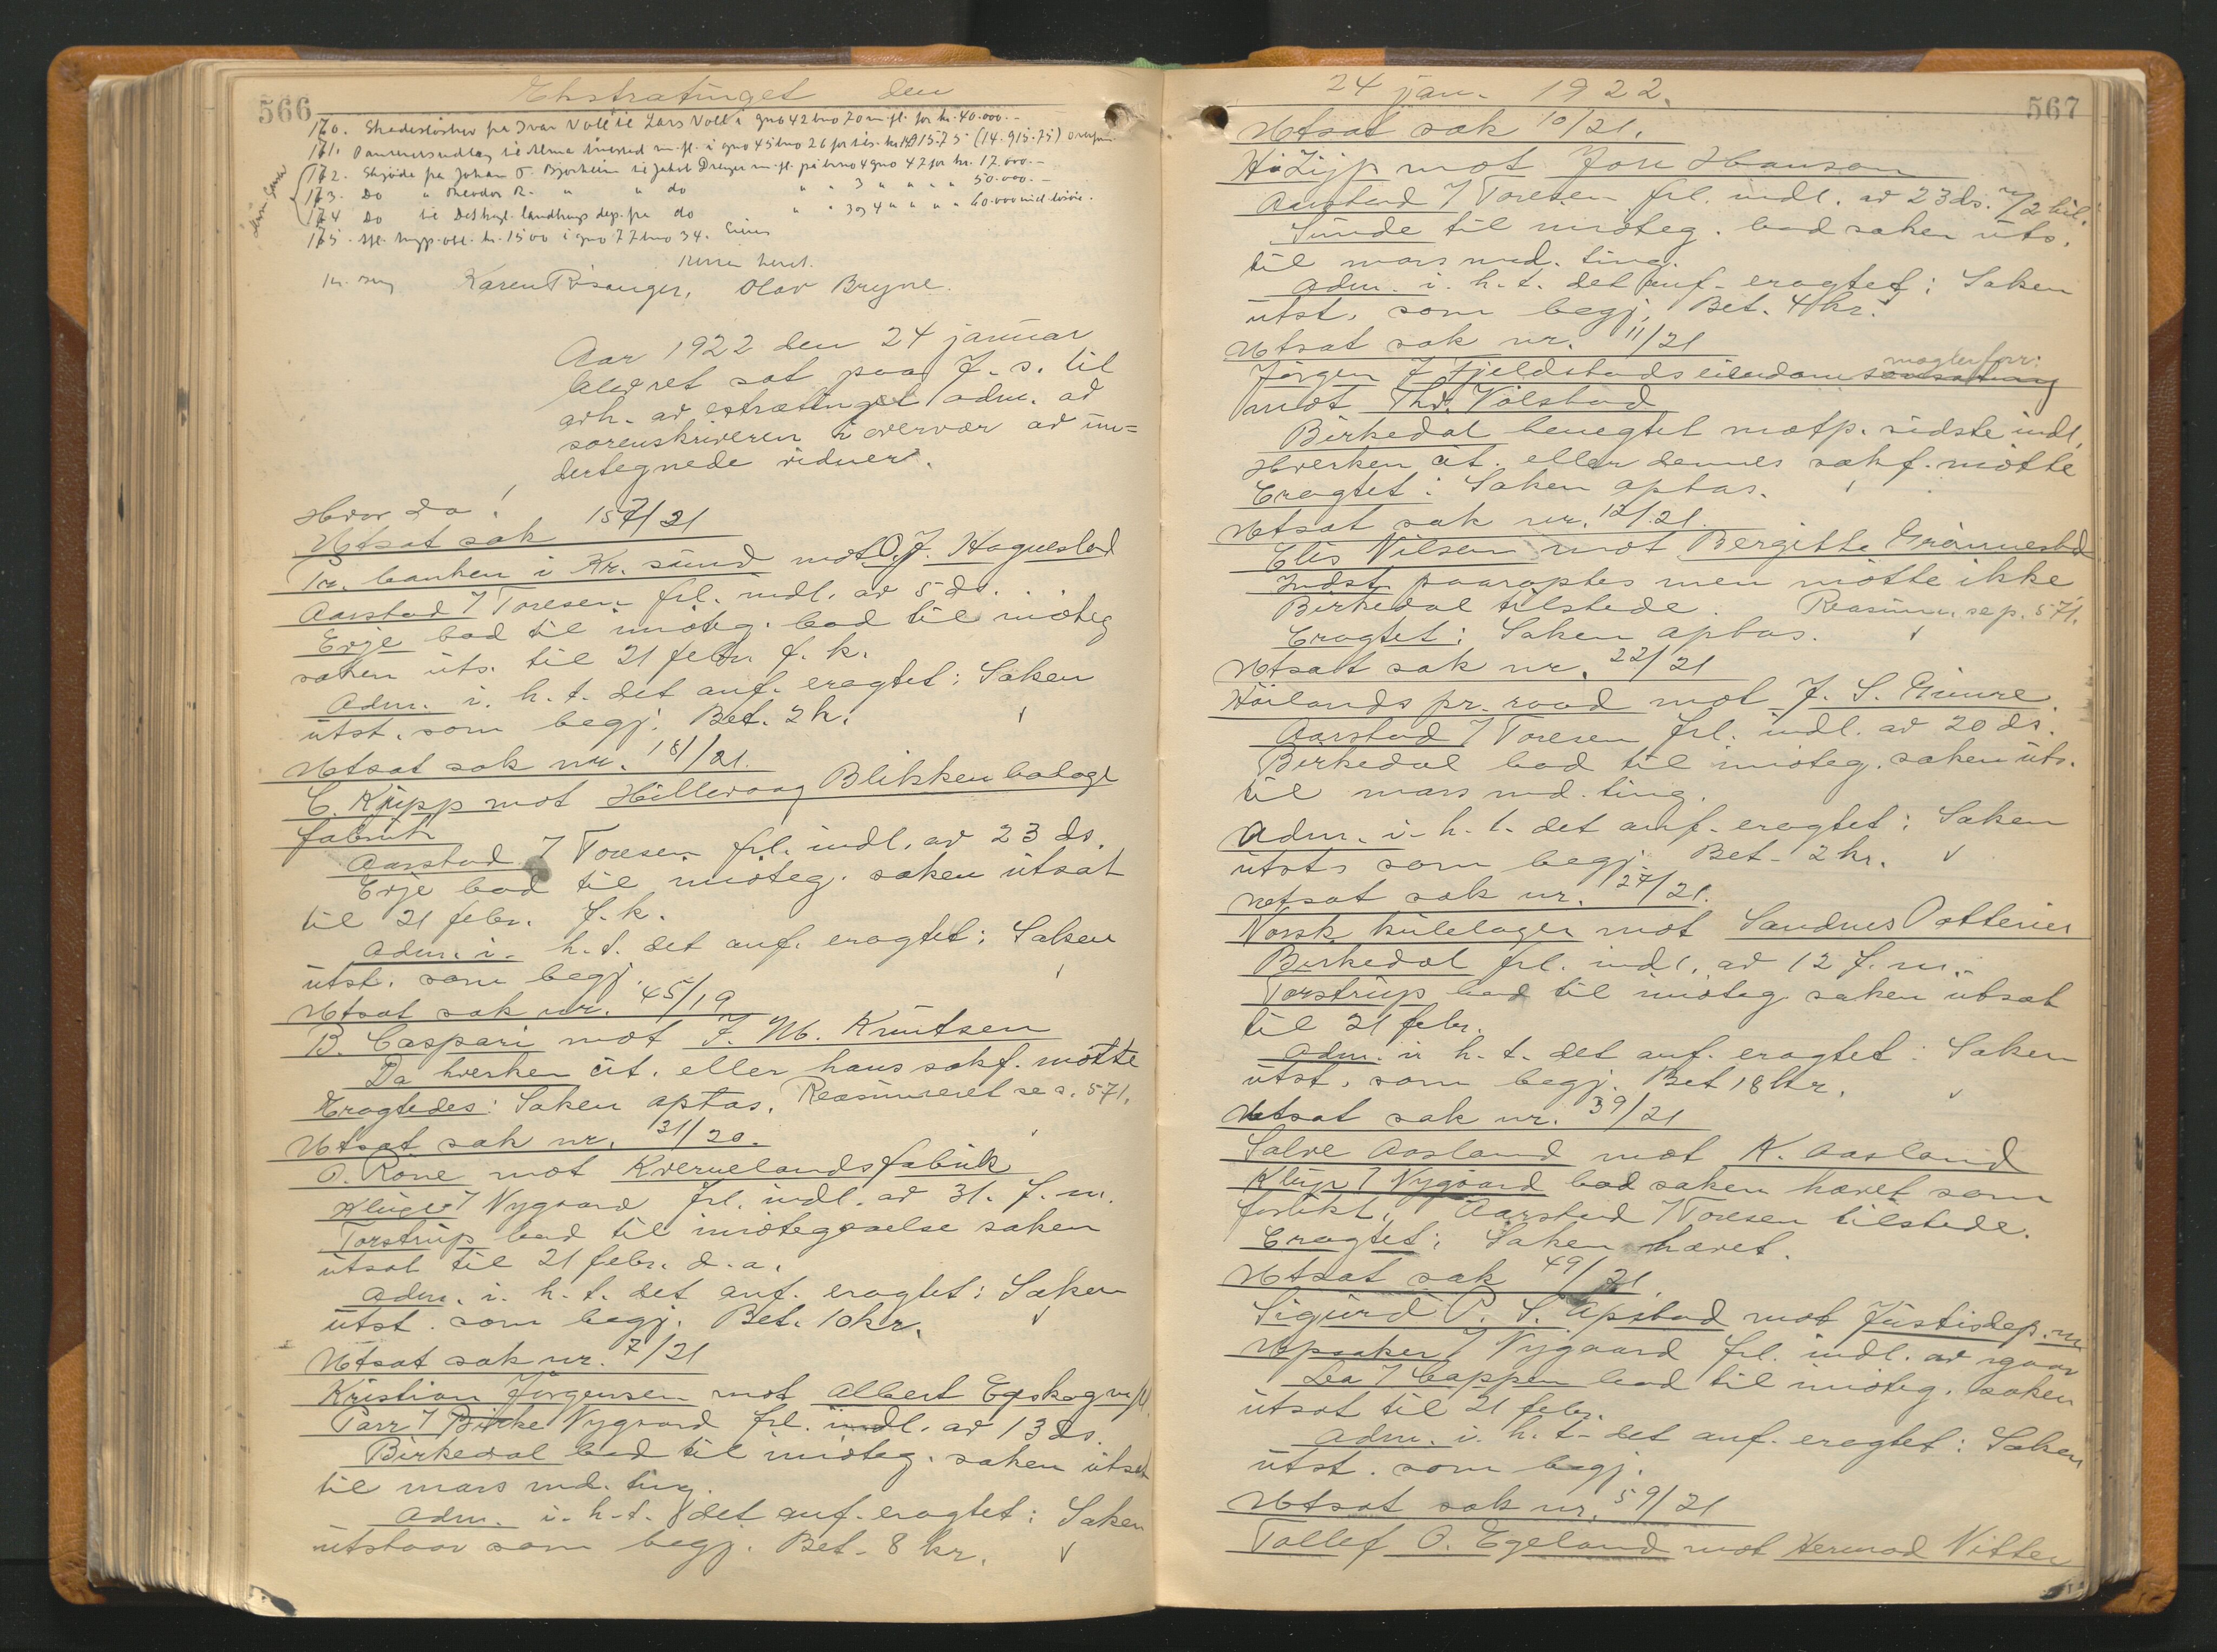 566
Ekstratinget den
170. Skadesløsbrev fra Ivar Voll til Lars Voll i gno 42 bno 70 m.fl. for kr. 40.000.-
171. Panteutlæg til m.fl. i gno 45 bno 26 for (14.915.75)
172. Skjøde fra Johan T. Bjorheim til Jakob Dreyer m.fl. på bno 4 gno 47 for kr. 17.000.-
173. Do " Theodor R. " " do " " 3 " " " " 50.000.-
174 Do til Det kgl. landbruks dep. fra do " " 3 og 4 " " " " 60.000 incl. løsøre.
175. Afl. hyp. obl. kr. 1500 i gno 77 bno 34.
Retten hevet.
Karen Risanger, Olav Bryne.
Aar 1922 den 24 januar
blev ret sat paa J. s. til
avh. av extratinget adm. av
sorenskriveren i overvær av un=
dertegnede vidner.
Hvor da!
Utsat sak 157/21
Pr. banken i Kr. sund mot O. J. Hognestad
Aarstad / Toresen frl. indl. av 5 ds.
Erje bad til imøteg. bad til imøteg
saken uts. til 21 febr. f. k.
Adm. i. h. t. det anf. eragtet: Saken
utst. som begj. Bet. 2 k.
Utsat sak nr. 181/21.
C. Krupp mot Hillevaag Blikkenbalage
fabrik
Aarstad / Toresen frl. indl. av 23 ds.
Erje bad til imøteg. saken utsat
til 21 febr. f. k.
Adm. i. h. t. det anf. eragtet: Saken
utst. som begj.
Utsat sak nr. 45/19
B. Caspari mot J. M. Knutsen
Da hverken cit. eller hans sakf. møtte
Eragtedes: Saken optas. Reasumeret se s. 571.
Utsat sak nr. 31/20.
O. Rone mot Kvernelandsfabrik
Kluge / Nygaard frl. indl. av 31. f. m.
Torstrup bad til imøtegaaelse saken
utsat til 21 febr. d. a.
Adm. i. h. t. det anf. eragtet: Saken
utst. som begj. Bet. 10 kr.
Utsat sak nr. 7/21
Kristian Jørgensen mot Albert Egeskog m/fl.
Parr / Birke Nygaard frl. indl. av 13 ds.
Birkedal bad til imøteg. saken utsat
til mars md. ting.
Adm. i. h. t. det anf. eragtet: Saken
utstaar som begj. Bet. 8 kr.
24 jan. 1922.
567
Utsat sak 10/21.
H. Zijp mot Jon Hanson
Aarstad / Toresen frl. indl. av 23 ds. m/2 bil.
Sunde til imøteg. bad saken uts.
til mars md. ting.
Adm. i. h. t. det anf. eragtet: Saken
utst. som begj. Bet. 4 kr.
Utsat sak nr. 11/21
Jørgen J. Fjeldstads eiendoms mæglerforr:
mot Thv. Vølstad
Birkedal benegtet motp. sidste indl.
Hverken cit. eller dennes sakf. møtte
Eragtet: Saken optas.
Utsat sak nr. 12/21.
Elis Nilsen mot Bergitte Grønnestad
Indst. paaroptes men møtte ikke
Birkedal tilstede. Reasum. se p. 571.
Eragtet: Saken optas.
Utsatt sak nr. 22/21
Høilands pr. raad mot J. S. Gimre.
Aarstad / Toresen frl. indl. av 20 ds.
Birkedal bad til imøteg. saken uts.
til mars md. ting.
Adm. i. h. t. det anf. eragtet: Saken
utst. som begj. Bet. 2 kr.
Utsat sak nr. 27/21.
Norsk kulelager mot Sandnes Potteries
Birkedal frl. indl. av 12 f. m.
Torstrup bad til imøteg. saken utsat
til 21 febr.
Adm. i. h. t. det anf. eragtet: Saken
utst. som begj. Bet 18 kr.
Utsat sak nr. 39/21
Salve Aasland mot K. Aasland
Kluge / Nygaard bad saken hævet som
forlikt. Aarstad / Toresen tilstede.
Eragtet: Saken hævet.
Utsat sak 49/21.
Sigurd P. S. Opstad mot Justisdep. m
/ Nygaard frl. indl. av igaar
Lea / Cappen bad til imøteg. saken
utsat til 21 febr.
Adm. i. h. t. det anf. eragtet: Saken
utst. som begj.
Utsat sak nr. 59/21
Tollef O. Egeland mot Hermod Vitter